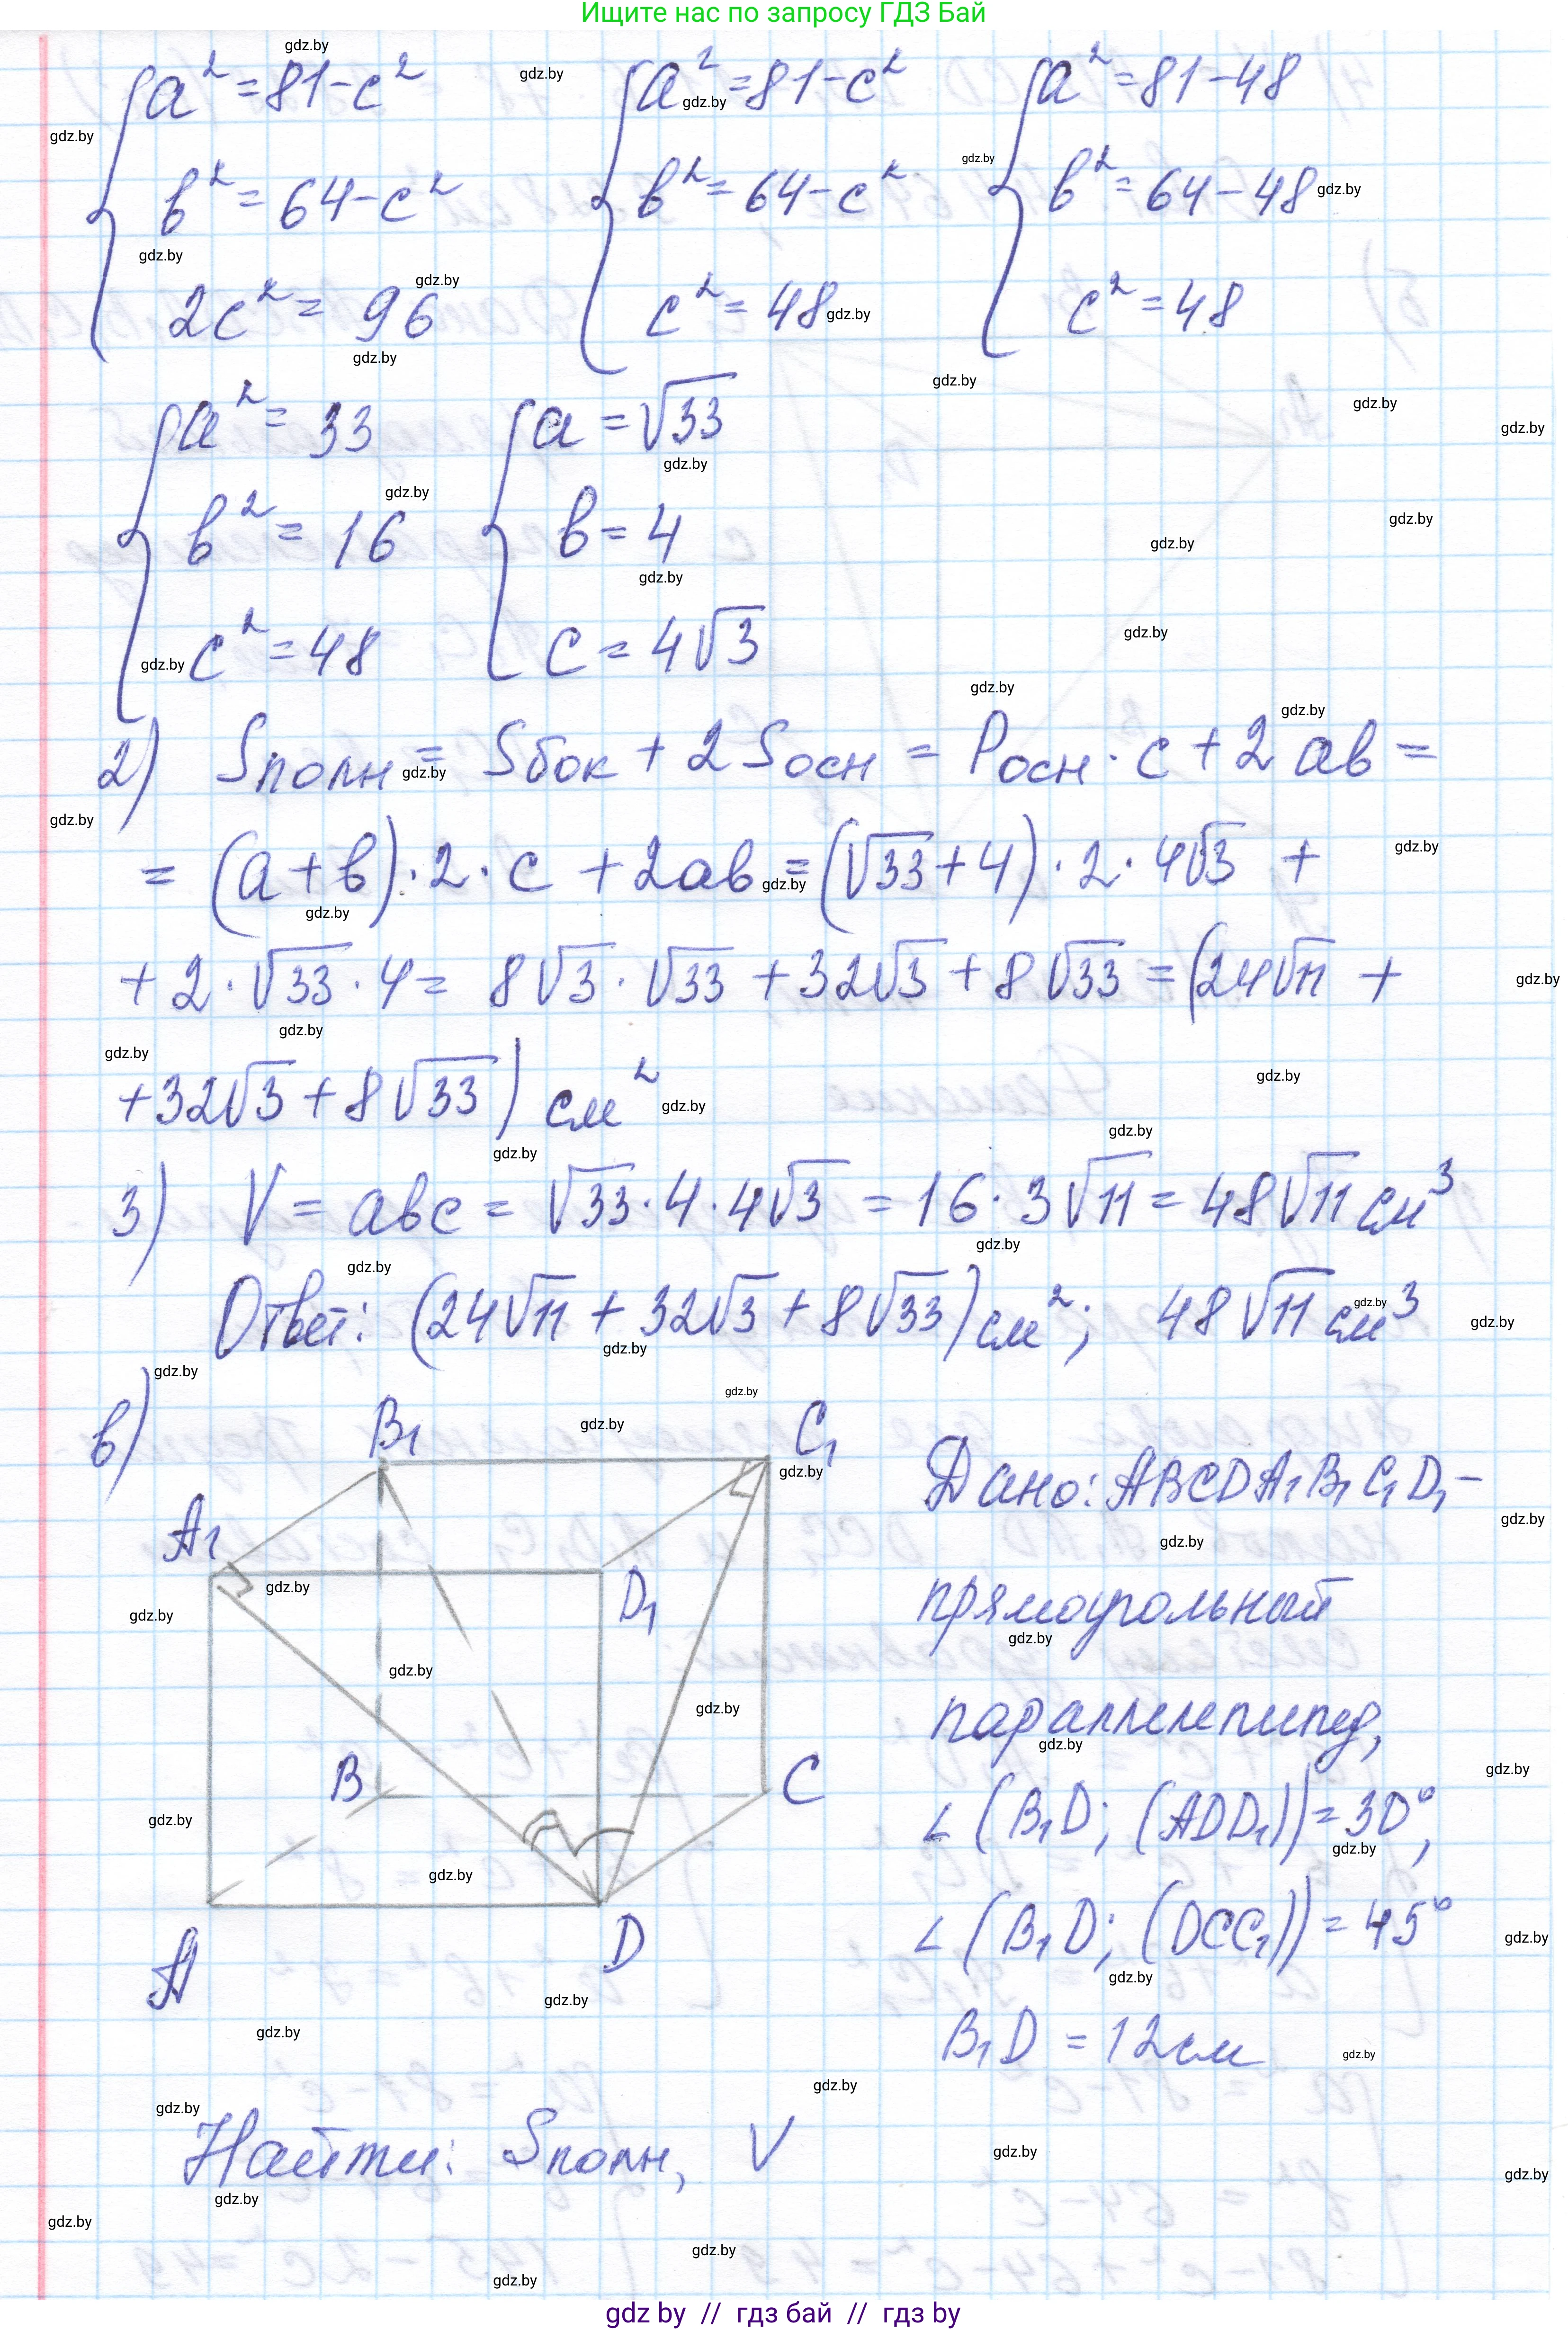 Ищите нас по запросу ГДЗ Бай
{ a² = 81 - c²   { a² = 81 - c²   { a² = 81 - 48
b² = 64 - c²   b² = 64 - c²   b² = 64 - 48
2c² = 96   c² = 48   c² = 48
{ a² = 33   { a = √33
b² = 16   b = 4
c² = 48   c = 4√3
2) Sполн = Sбок + 2 Sосн = Pосн · c + 2 ab =
= (a + b) · 2 · c + 2ab = (√33 + 4) · 2 · 4√3 +
+ 2 · √33 · 4 = 8√3 · √33 + 32√3 + 8√33 = (24√11 +
+ 32√3 + 8√33) см²
3) V = abc = √33 · 4 · 4√3 = 16 · 3√11 = 48√11 см³
Ответ: (24√11 + 32√3 + 8√33) см²; 48√11 см³
в)
B₁ C₁
A₁ D₁
B C
A D
Дано: ABCDA₁B₁C₁D₁ –
прямоугольный
параллелепипед,
∠(B₁D; (ADD₁)) = 30°,
∠(B₁D; (DCC₁)) = 45°
B₁D = 12 см
Найти: Sполн, V
gdz by // гдз бай // гдз by